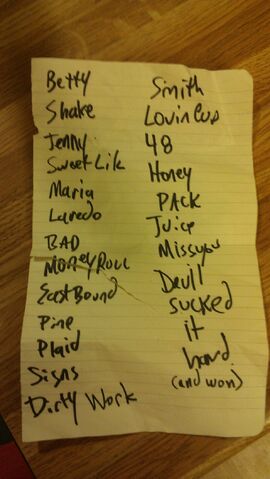 Betty
Shake
Jenny
Sweet Lik
Maria
Laredo
BAD
MONEY ROLL
East Bound
Pine
Plaid
Signs
Dirty Work
Smith
Lovin Cup
48
Honey
PACK
Juice
Missyou
Devil
sucked
it
hard
(and won)